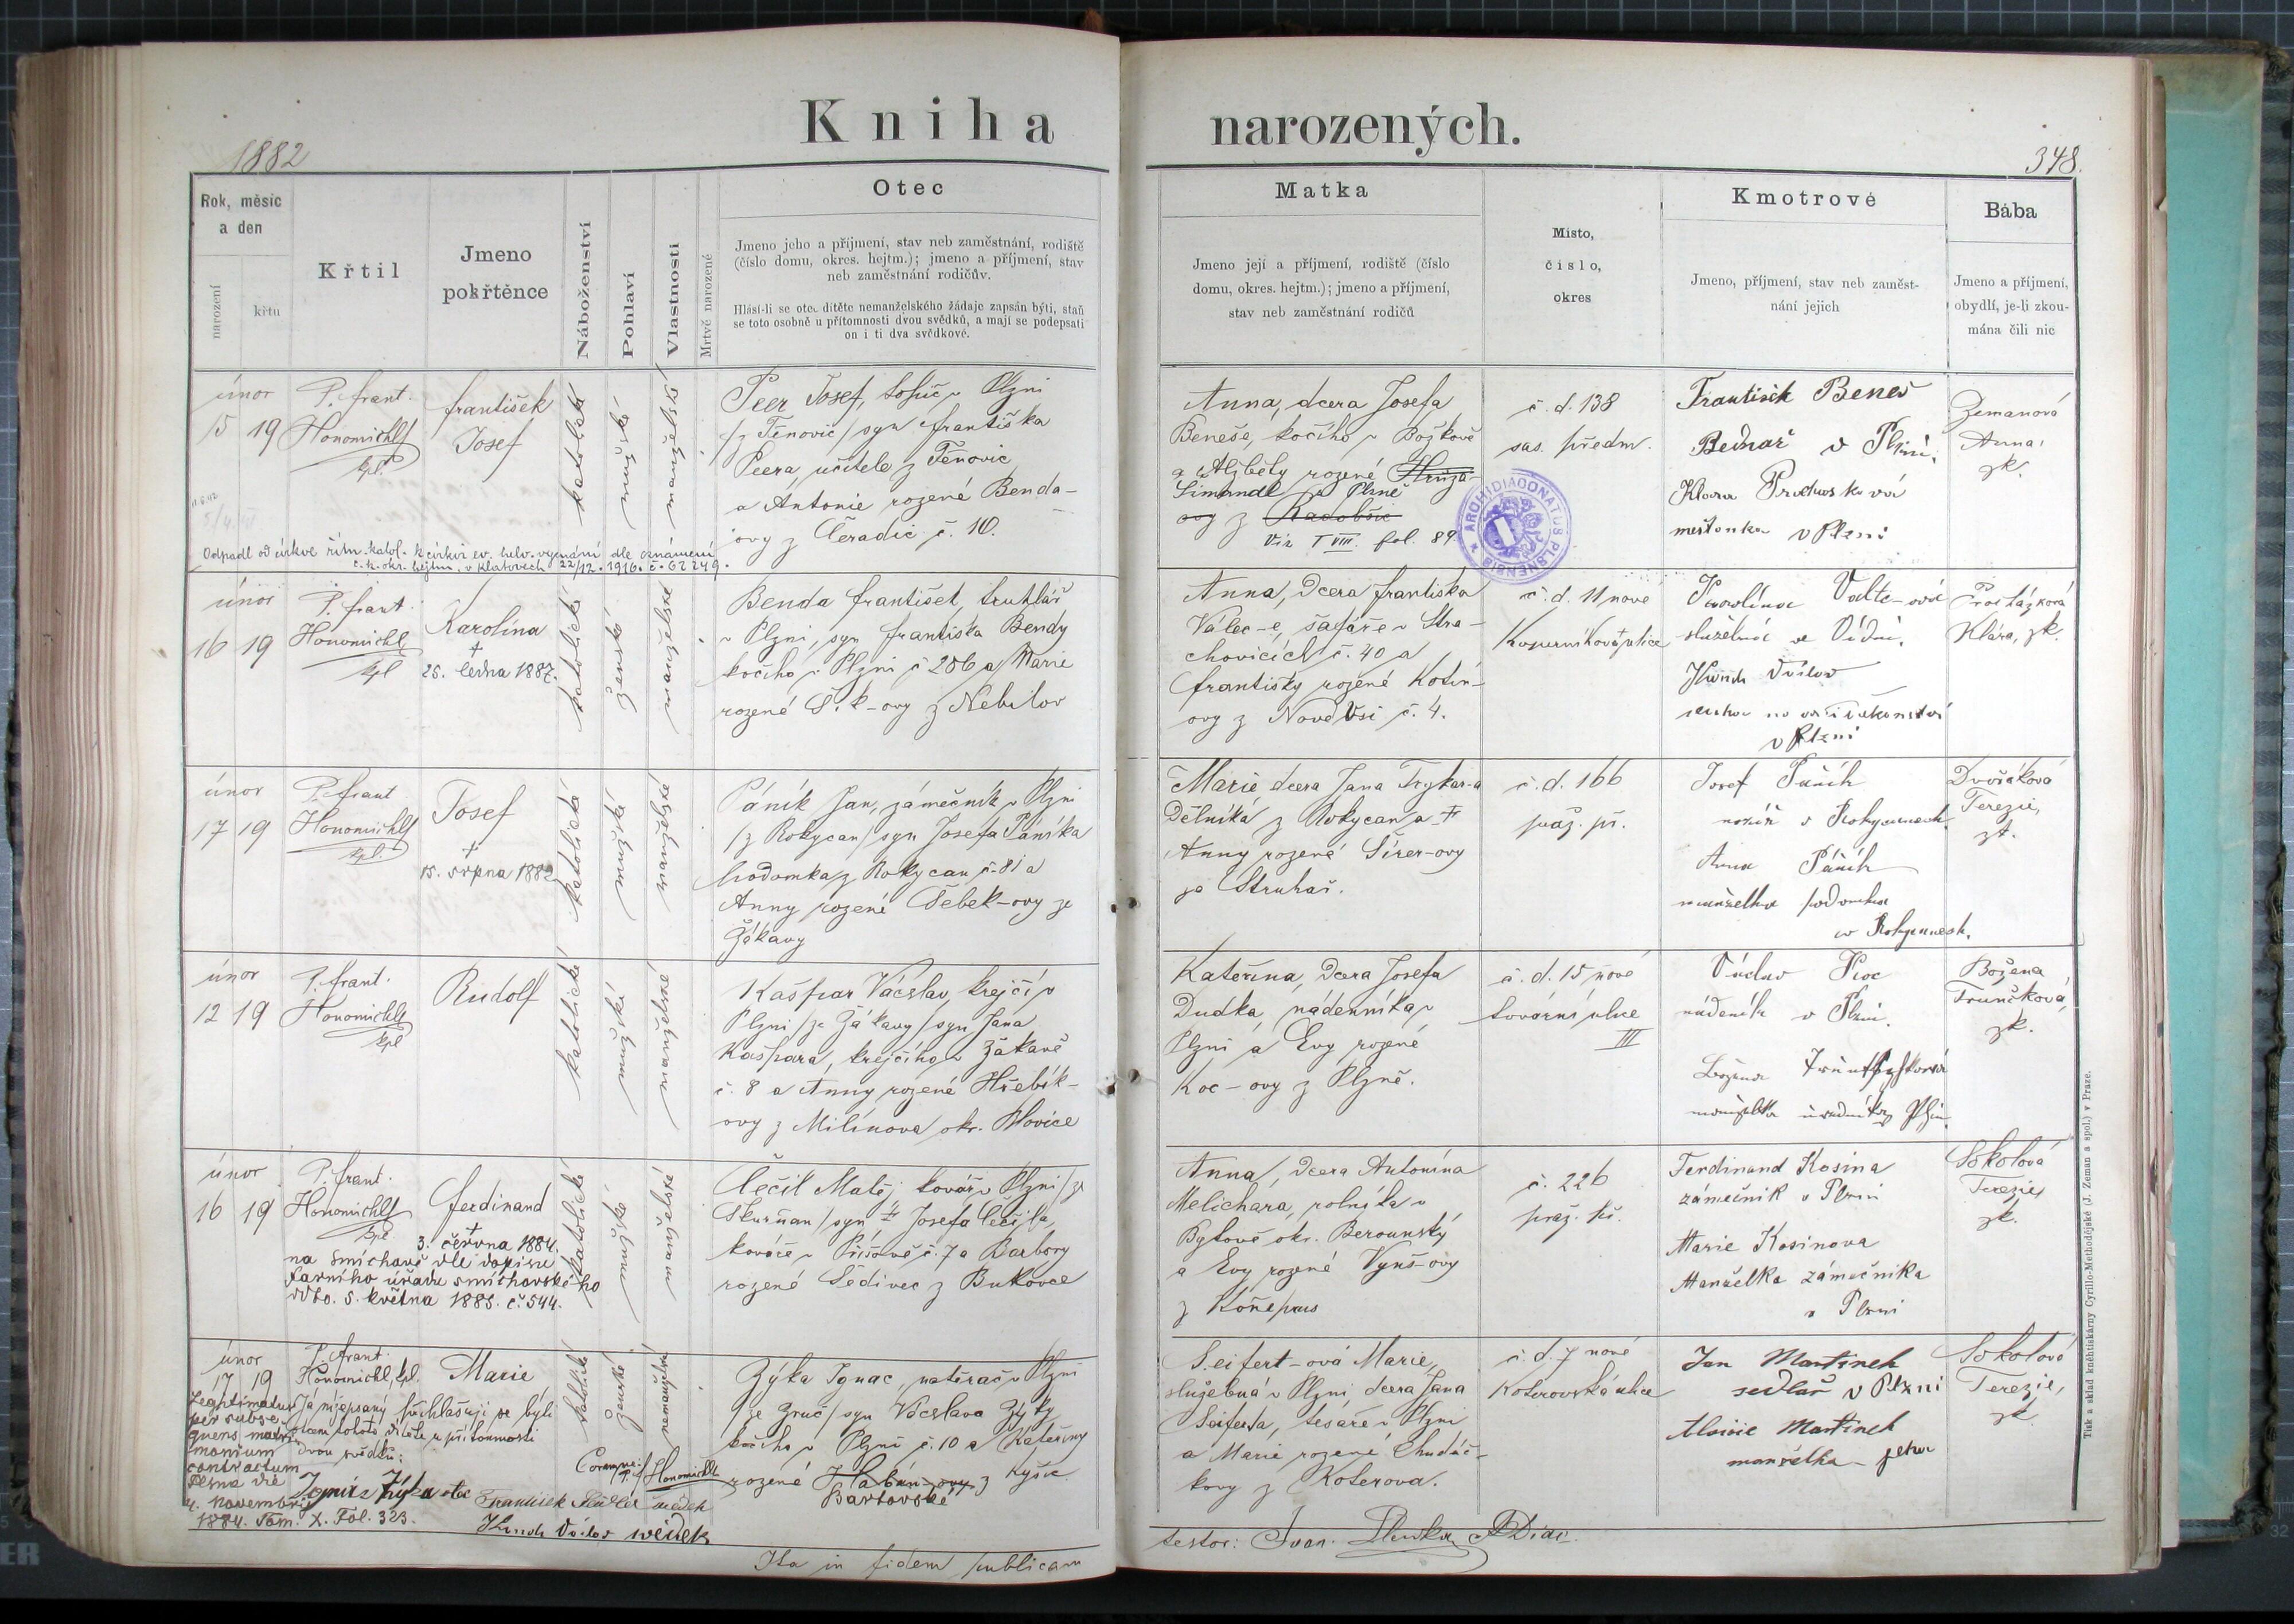 Kniha narozených.
1882
348.
Rok, měsíc
a den
narození
křtu
Křtil
Jmeno
pokřtěnce
Náboženství
Pohlaví
Vlastnosti
Mrtvě narozené
Otec
Jmeno jeho a příjmení, stav neb zaměstnání, rodiště
(číslo domu, okres. hejtm.); jmeno a příjmení, stav
neb zaměstnání rodičův.
Hlásí-li se otec dítěte nemanželského žádaje zapsán býti, staň
se toto osobně u přítomnosti dvou svědků, a mají se podepsati
on i ti dva svědkové.
Matka
Jmeno její a příjmení, rodiště (číslo
domu, okres. hejtm.); jmeno a příjmení,
stav neb zaměstnání rodičů
Místo,
číslo,
okres
Kmotrové
Jmeno, příjmení, stav neb zaměst-
nání jejich
Bába
Jmeno a příjmení,
obydlí, je-li zkou-
mána čili nic
únor
15 19
P. frant.
Honomichl
kpl.
František
Josef
katolické
mužské
manželské
Peer Josef, v Plzni
/z Těnovic/ syn Františka
Peera, učitele z Těnovic
a Antonie rozené Benda-
ovy z Čeradic č. 10.
Odpadl od církve řím. katol. k církvi ev. helv. vyznání dle oznámení
c. k. okr. hejtm. v Klatovech 22/12. 1916. č. 62249.
Anna, dcera Josefa
Beneše, kočího v Božkově
a Alžběty rozené
Simandl z Plzně
ovy z Radobčic
Viz T VIII. fol. 89.
č. d. 138
sas. předm.
ARCHIDIACONATUS PLSNENSIS
František Beneš
Bednář v Plzni.
Klara
v Plzni
Zemanová
Anna,
zk.
únor
16 19
P. frant.
Honomichl
kpl
Karolína
†
25. ledna 1887.
katolické
ženské
manželské
Benda František, truhlář
v Plzni, syn Františka Bendy
kočího v Plzni č 206 a Marie
rozené z Nebílov
Anna, dcera Františka
Válec-e, šafáře v Stra-
chovicích č. 40 a
Františky rozené Kotin-
ovy z Nové Vsi č. 4.
č. d. 11 nové
Koperníkova ulice
Karolína
služebná ve Vídni.
v Plzni
Procházková
Klára, zk.
únor
17 19
P. frant
Honomichl
kpl.
Josef
†
15. srpna 1882
katolické
mužské
manželské
Páník Jan, zámečník v Plzni
/z Rokycan/ syn Josefa Páníka
z Rokycan č. 81 a
Anny rozené Šebek-ovy ze
Žákavy
Marie dcera Jana
Dělníka z Rokycan a
Anny rozené Sírer-ovy
ze Struhař.
č. d. 166
praž. př.
Josef
v Rokycanech.
Anna
manželka
Rokycanech.
Dvořáková
Terezie,
zk.
únor
12 19
P. frant.
Honomichl
kpl
Rudolf
katolické
mužské
manželské
Kašpar Václav, krejčí v
Plzni /ze Žákavy/ syn Jana
Kašpara, krejčího v Žákavě
č. 8 a Anny rozené Hřebík-
ovy z Milínova okr. Blovice
Kateřina, dcera Josefa
Dudka, nádenníka v
Plzni a Evy rozené
Koc-ovy z Plzně.
č. d. 15 nové
tovární ulice
III
Václav Koc
nádeník v Plzni.
Božena
manželka úředníka Plzni.
Božena
Trunčková,
zk.
únor
16 19
P. frant.
Honomichl
kpl
Ferdinand
†
3. června 1884.
na Smíchově dle dopisu
farního úřadu smíchovského
ddto. 5. května 1885. č. 544.
katolické
mužské
manželské
Čečil Matěj, kovář v Plzni /ze
Skurňan/ syn † Josefa Čečila,
kováře v Příšově č. 7 a Barbory
rozené Šedivec z Bukovce
Anna, dcera Antonína
Melichara, rolníka v
Bytově okr. Berounský
a Evy rozené Vynš-ovy
z Koněprus
č. 226
praž. př.
Ferdinand Kosina
zámečník v Plzni
Marie Kosinova
Manželka zámečnika
v Plzni
Sokolová
Terezie,
zk.
únor
17 19
P. frant.
Honomichl, kpl.
Marie
katolické
ženské
nemanželské
Legitimatus
per subse-
quens matri-
monium
contractum
Plsna die
4. Novembris
1884. Tom. X. Fol. 323.
Já nížepsaný přihlašuji se býti
otcem tohoto dítěte u přítomnosti
dvou svědků:
Ignáz Zyka otec
František svědek
Václav svědek
Coram me: P. f. Honomichl
Zýka Ignac, natěrač v Plzni
/ze Zruč/ syn Václava Zýky
kočího v Plzni č. 10 a Kateřiny
rozené z Kyšic
Bartovské
Seifert-ová Marie,
služebná v Plzni, dcera Jana
Seiferta, tesaře v Plzni
a Marie rozené Chudáč-
kovy z Koterova.
č. d. 7 nové
Koterovská ulice
Jan Martinek
sedlář v Plzni
Aloisie Martinek
manželka
Sokolová
Terezie,
zk.
Ita in fidem publicam
testor: Ivan.
Tisk a sklad kněhtiskárny Cyrillo-Methodějské (J. Zeman a spol.) v Praze.